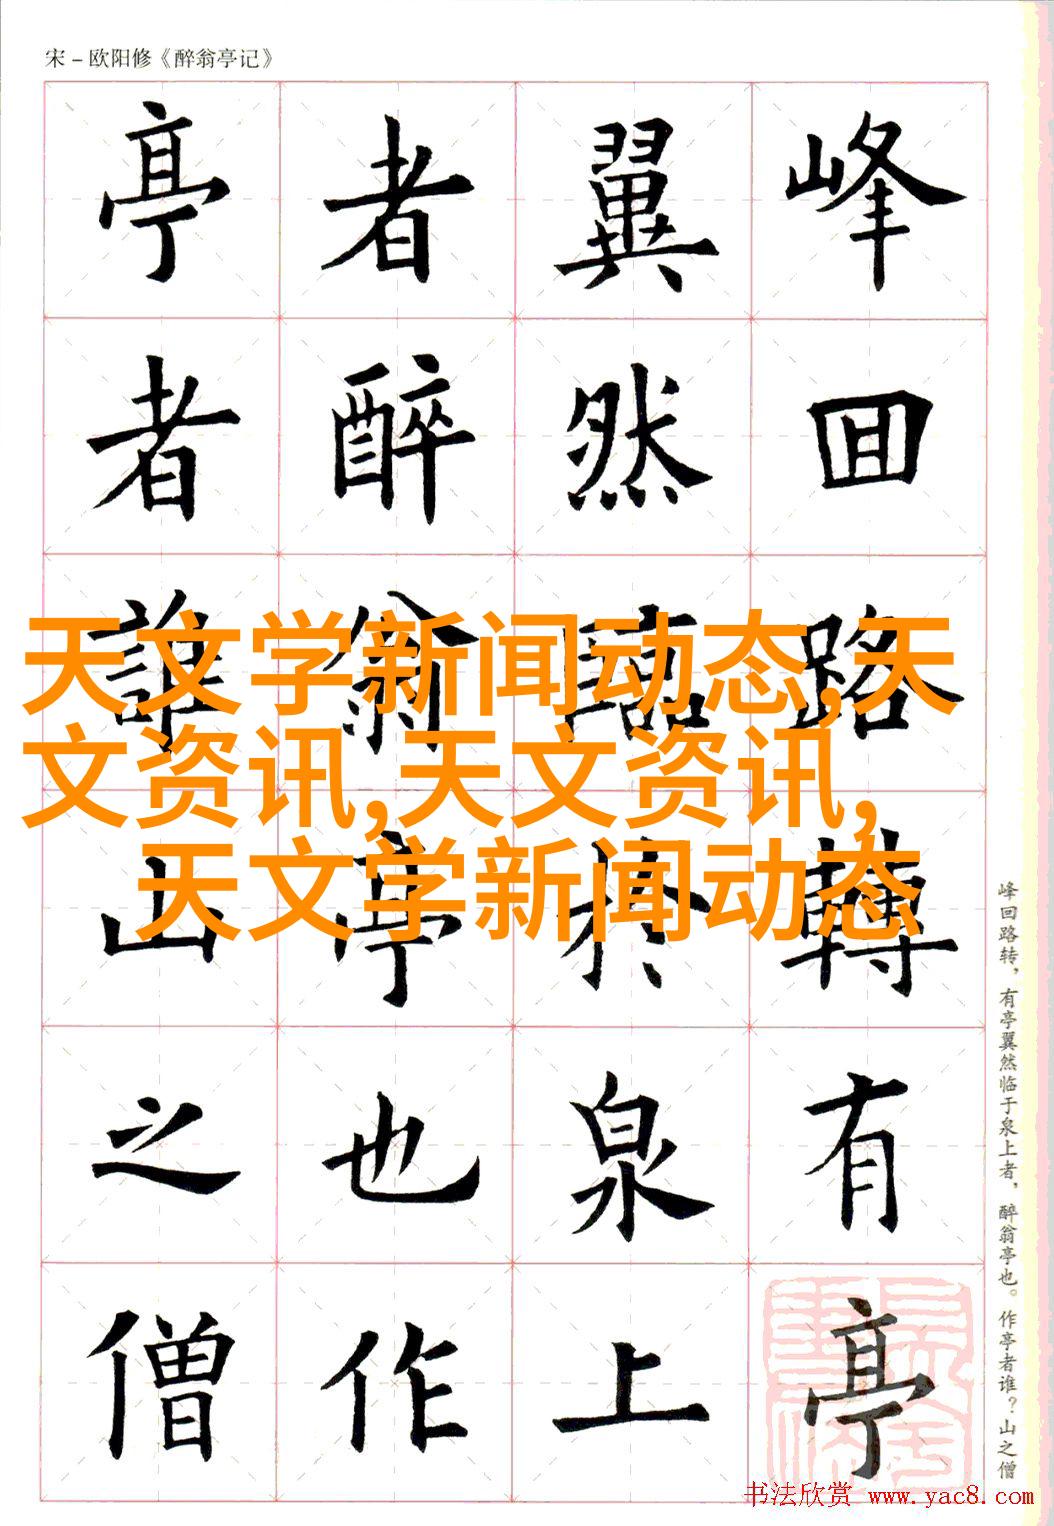 宋－欧阳修《醉翁亭记》
峰囬路轉有亭
翼然臨於泉上
者醉翁亭也作
亭者誰山之僧
天文学新闻动态,天
文资讯,天文资讯,
天文学新闻动态
峰回路转，有亭翼然临于泉上者，醉翁亭也。作亭者谁？山之僧
书法欣赏 www.yac8.com